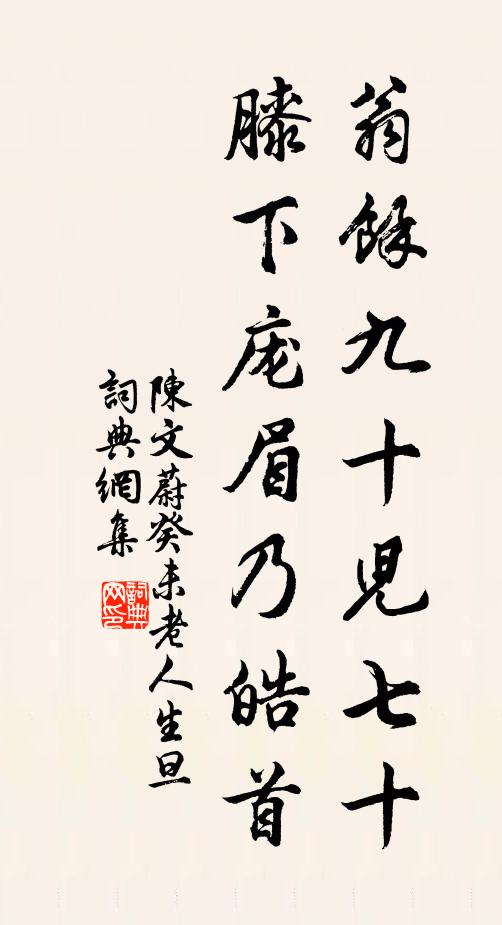 翁餘九十児七十
膝下庞眉乃皓首
陳文蔚癸未老人生旦
詞典網集
詞典网印